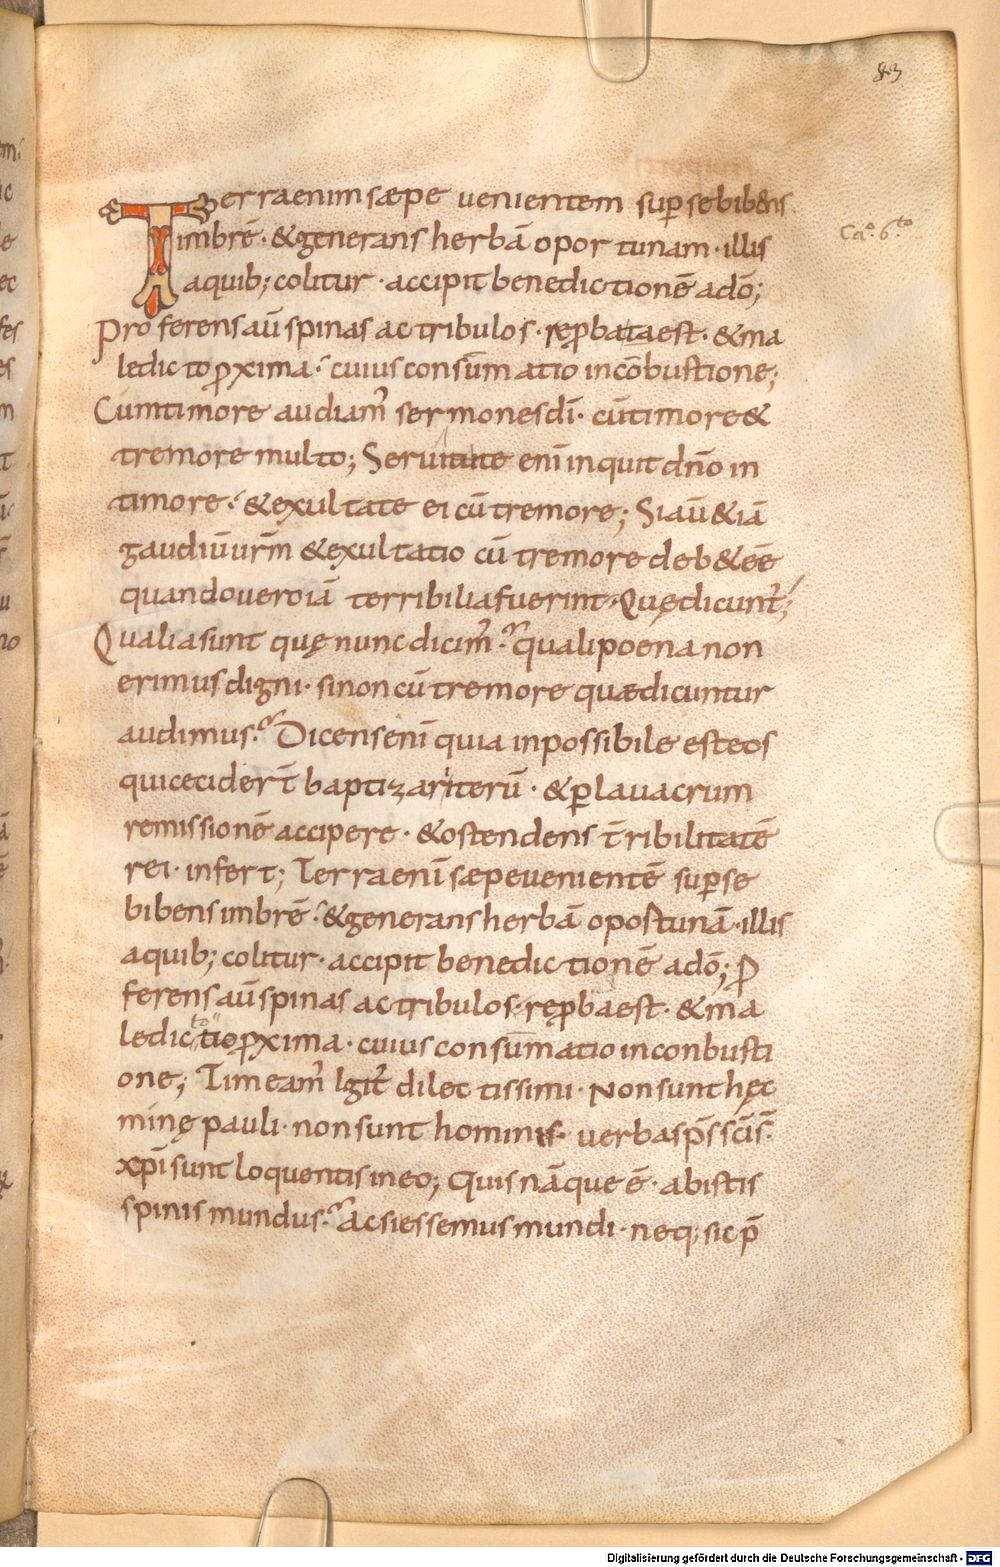 83
Terraenim sæpe uenientem sup̱ se bib&ns
imbrē · &generans herbā oportunam · illis
aquib; colitur · accipit benedictionē adō;
Proferens aū spinas ac tribulos · rep̱bataest · &ma
ledicto p̱xima · cuius consūmatio incōbustione;
Cap̊. 6.to
Cumtimore audiam̄ sermones dī · cūtimore &
tremore multo; Seruitute enī inquit dn̄o in
timore · &exultate ei cū tremore; Siaū &iā
gaudiū ur̄m &exultatio cū tremore deb& eē
quando uero iā terribilia fuerint · Quędicunt̄;
Qualia sunt quę nunc dicim̄ · quali poena non
erimus digni · sinon cū tremore quædicuntur
audimus · Dicens enī quia inpossibile est eos
qui ceciderт̄ baptizari iterū · & p̱ lauacrum
remissionē accipere · &ostendens t̄ribilitatē
rei · infert; Terra enī sæpe uenientē sup̱ se
bibens imbrē · &generans herbā oportunā · illis
aquib; colitur · accipit benedictionē adō; p̱
ferens aū spinas ac tribulos · rep̱baest · &ma
ledictio p̱xima · cuius consūmatio inconbusti
one; Timeam̄ Igit̄ dilectissimi · Non sunt hęc
minę pauli · non sunt hominis · uerba sp̄s sc̄i s̄
xp̄i sunt loquentis in eo; Quis nāque ē · ab istis
spinis mundus · ac si essemus mundi · neq; sic p̄
Digitalisierung gefördert durch die Deutsche Forschungsgemeinschaft - DFG